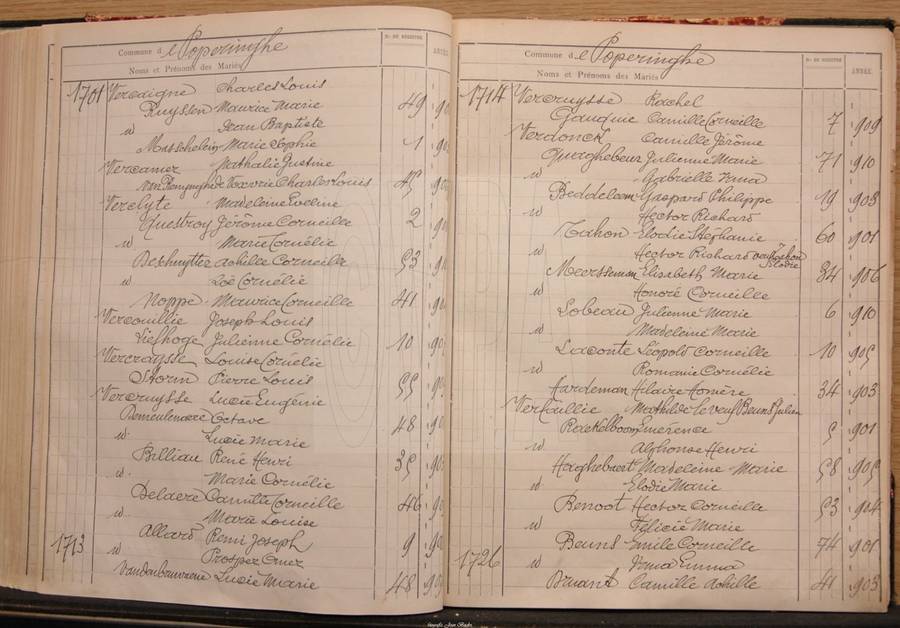 Commune de Poperinghe
Nos DE REGISTRE
Noms et Prénoms des Mariés
1701 Vercaigne Charles Louis
Ruyssen Maurice Marie 49
id Jean Baptiste
Masschelein Marie Sophie 1
Vercamer Nathalie Justine
Charles Louis 45
Verclyte Madeleine Eveline
Questroy Jérôme Corneille 2
id Marie Cornélie
Deschuyttee Achille Corneille 53
id Zoë Cornélie
Noppe Maurice Corneille 41
Vercouillie Joseph Louis
Liefhoge Julienne Cornélie 10
Vercruysse Louise Cornélie
Storm Pierre Louis 55
Vercruysse Lucie Eugénie
Demeulenaere Octave 48
id Lucie Marie
Billiau René Henri 35
id Marie Cornélie
Delaere Camille Corneille 46
id Marie Louise
Allard Remi Joseph 9
1713 id Prosper Omer
Lucie Marie 48
Commune de Poperinghe
Nos DE REGISTRE
ANNÉE
Noms et Prénoms des Mariés
1714 Vercruysse Rachel
Gauquie Camille Corneille 7 909
Verdonck Camille Jérôme
Quaghebeur Julienne Marie 71 910
id Gabrielle Irma
Beddeleem Gaspard Philippe 19 908
id Hector Richard
Tahon Elodie Stéphanie 60 901
id Hector Richard veuf Tahon Elodie
Meersseman Elisabeth Marie 34 906
id Honoré Corneille
Lobeau Julienne Marie 6 910
id Madeleine Marie
Laconte Léopold Corneille 10 905
id Romanie Cornélie
Hardeman Hilaire Homère 34 903
Verfaillie Mathilde Veuve Beuns Julien
Raekelboom Emérence 5 901
id Alphonse Henri
Haghebaert Madeleine Marie 58 905
id Elodie Marie
Benoot Hector Corneille 53 904
id Félicie Marie
Beuns Emile Corneille 74 901
1726 id Irma Emma
Bruant Camille Achille 41 903